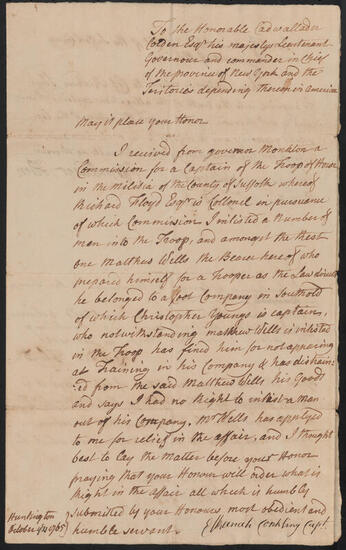 To the Honorable Cadwallader
Colden Esqr his majestys Lieutenant
Governour and commander in Chief
of the province of New York and the
Teritories depending thereon in America
May it place your Honor
I received from governor Monkton a
Commission for a Captain of the Troop of Horse
in the Militia of the County of Suffolk whereof
Richard Floyd Esqr is Collonel in pursuance
of which Commission I inlisted a Number of
men into the Troop, and amongst the Rest
one Matthew Wells the Bearer hereof who
prepared himself for a Trooper as the Law directs
he belonged to a foot Company in Southold
of which Christopher Youngs is captain,
who notwithstanding matthew Wells is inlisted
in the Troop has fined him for not appearing
at Training in his Company & has distrain
:ed from the said Matthew Wells his Goods
and says I had no Right to inlist a man
out of his Company, Mr Wells has applyed
to me for relief in the affair, and I thought
best to Lay the Matter before your Honor
praying that your Honour will order what is
Right in the affair all which is humbly
submitted by your Honours most obedient and
humble servant.
Huntington
October 1765
Conkling Capt.